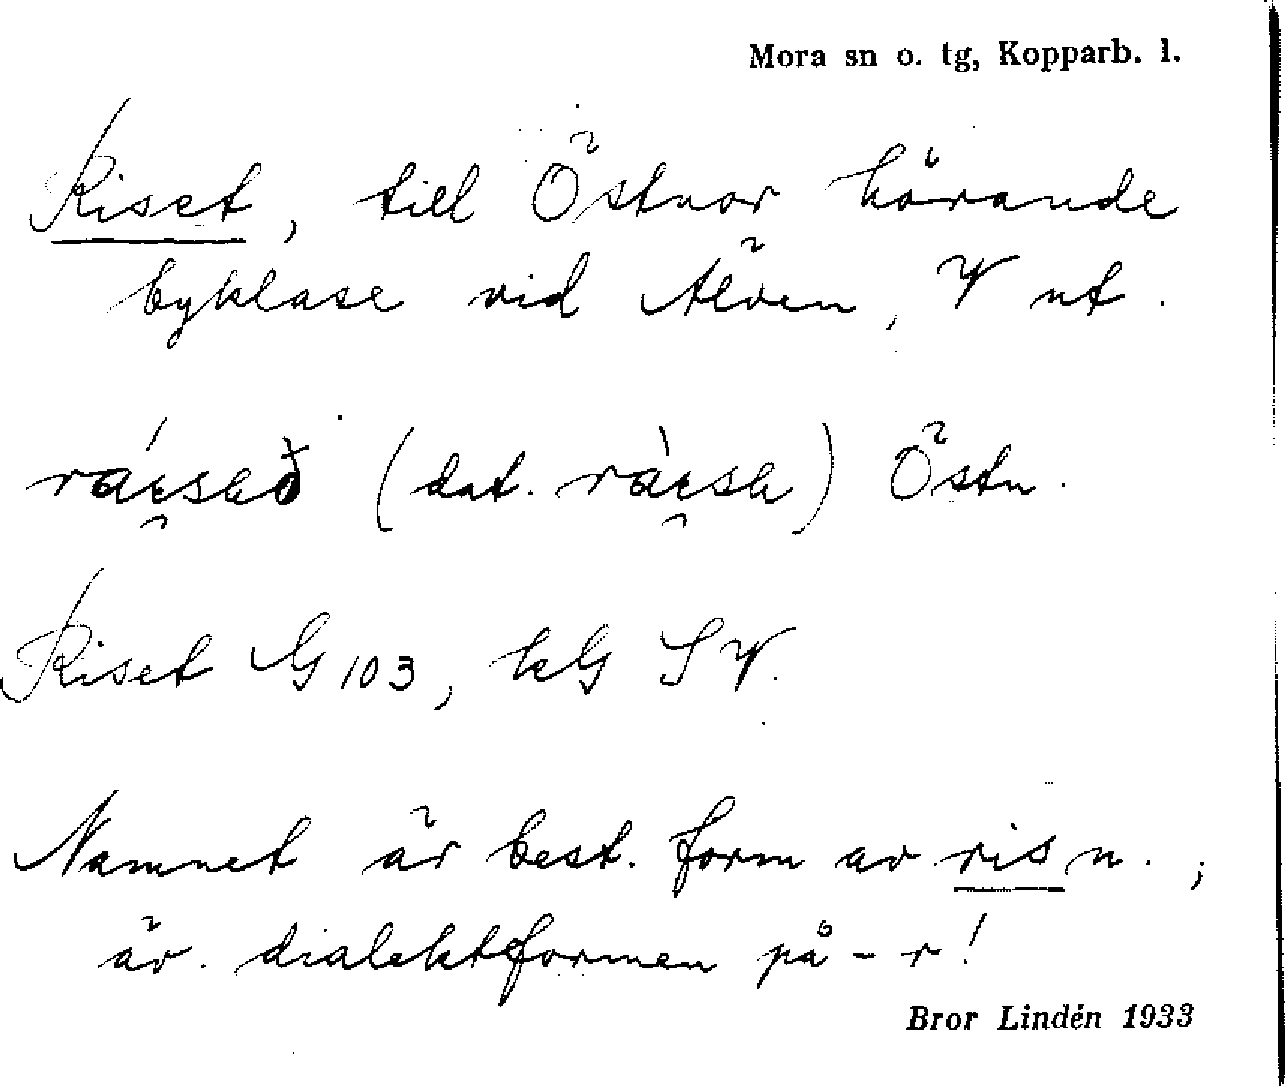 Mora sn o. tg, Kopparb. l.
Riset, till Östnor hörande
byklase vid Älven, V ut.
(dat.) Östn.
Riset G 103, kG SV.
Namnet är best. form av ris n.;
äv. dialektformen på -r!
Bror Lindén 1933